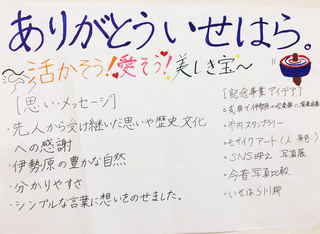 ありがとういせはら。
～活かそう!愛そう!美しき宝～
[思い・メッセージ]
・先人から受け継いだ思いや歴史、文化
への感謝
・伊勢原の豊かな自然
・分かりやすさ
・シンプルな言葉に想いをのせました。
[記念事業アイデア]
・市内スタンプラリー
・モザイクアート(人
・SNS映え 写真展
・今昔写真比較
・いせはら川柳